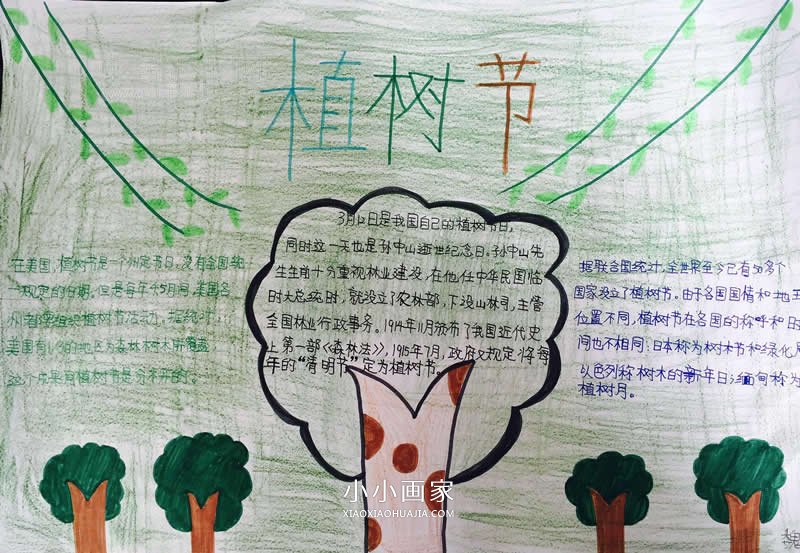 植树节
3月12日是我国自己的植树节日,
同时这一天也是孙中山逝世纪念日。孙中山先
生生前十分重视林业建设,在他任中华民国临
时大总统时,就没立了农林部,下没山林司,主管
全国林业行政事务。1914年11月颁布了我国近代史
上第一部《森林法》,1915年7月,政府又规定将每
年的“清明节”定为植树节。
在美国,植树节是一个州定节日,没有全国统
一规定的日期。但是每年4、5月间,美国各
州都要组织植树节活动。据统计,
美国有1/3的地区为森林树木所覆盖
这个成果同植树节是分不开的。
据联合国统计,全世界至今已有50多个
国家没立了植树节。由于各国国情和地理
位置不同,植树节在各国的称呼和日
间也不相同:日本称为树木节和绿化
以色列称树木的新年日;缅甸称为
植树月。
魏
小小画家
XIAOXIAOHUAJIA.COM